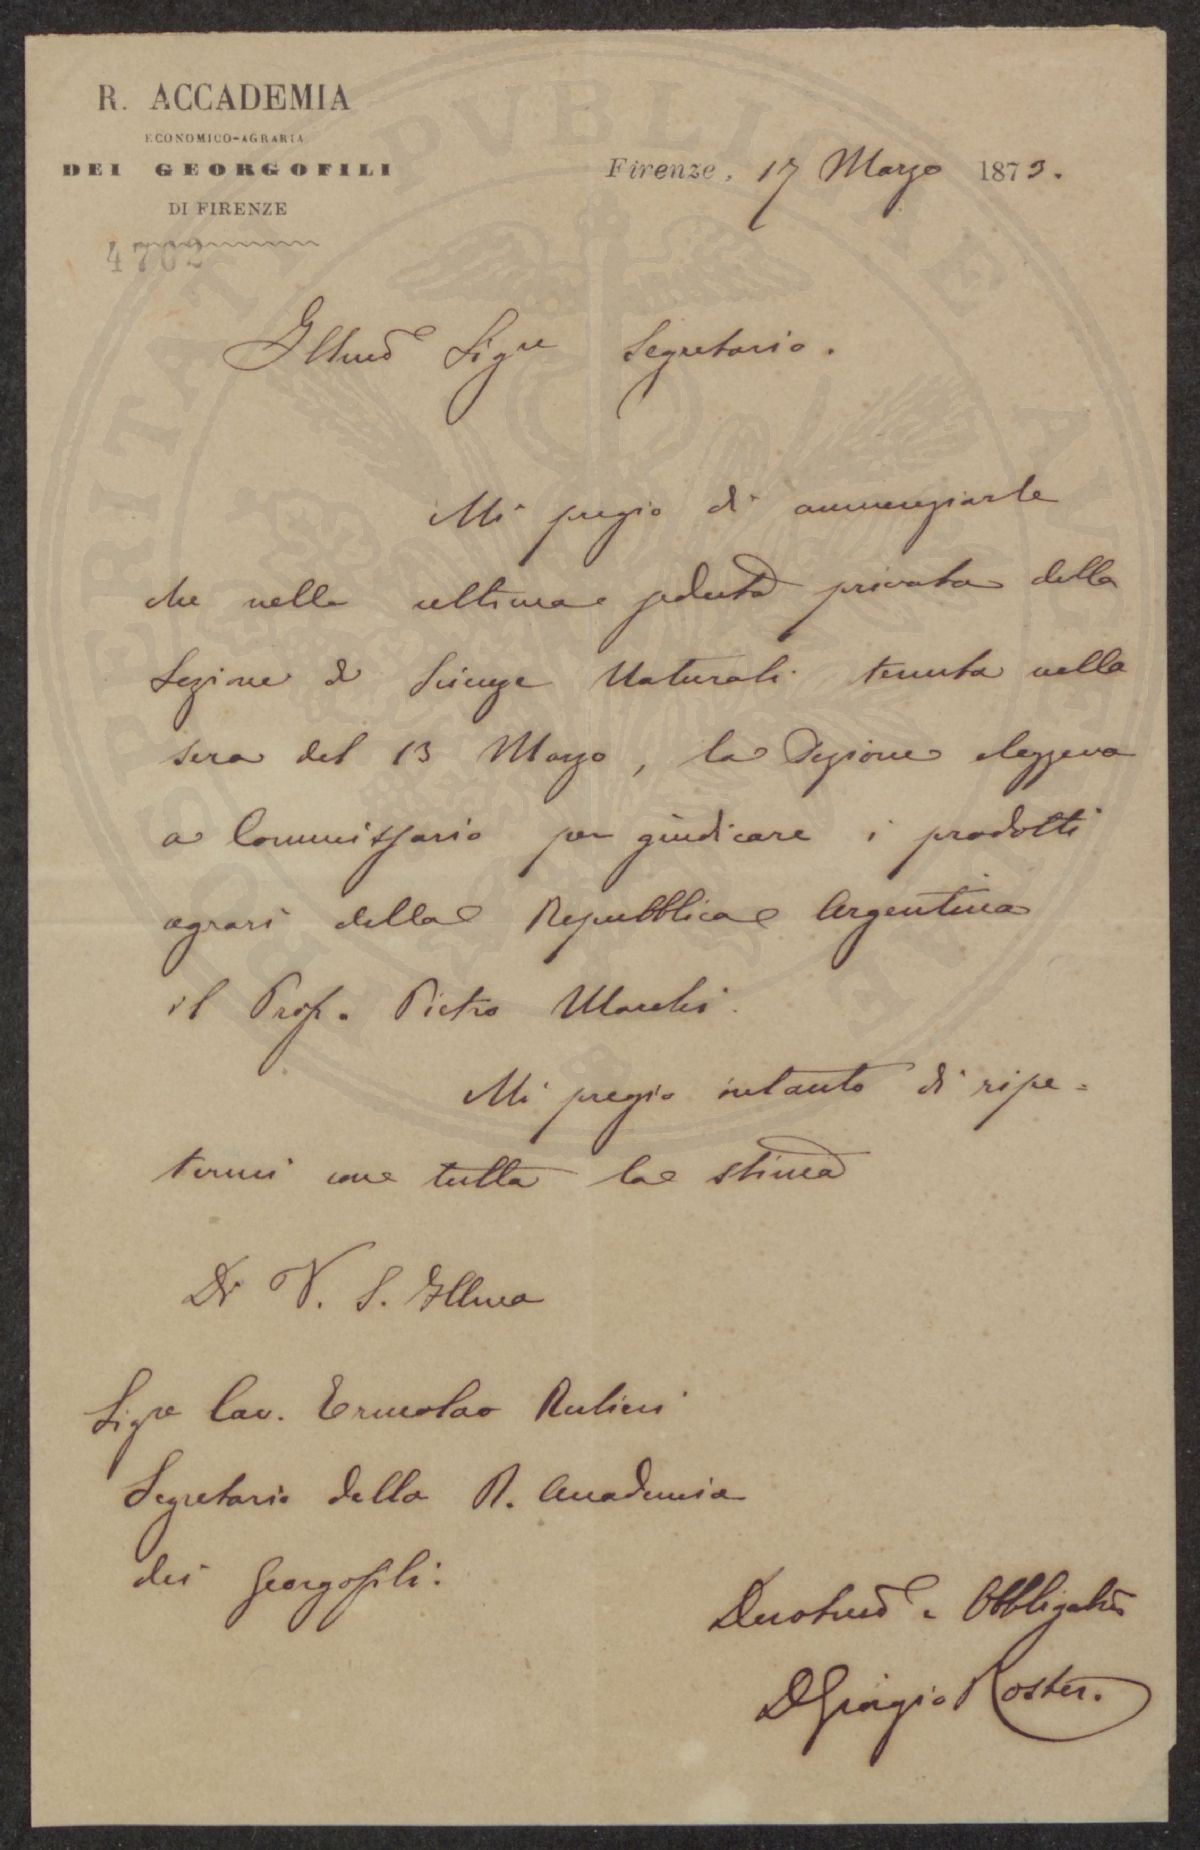 R. ACCADEMIA
ECONOMICO-AGRARIA
DEI GEORGOFILI
DI FIRENZE
4702
Firenze, 17 Marzo 1873.
Illmo Sigre Segretario.
Mi pregio di annunziarle
che nella ultima seduta privata della
Sezione di Scienze Naturali tenuta nella
sera del 13 Marzo, la Sezione eleggeva
a Commissario per giudicare i prodotti
agrari della Repubblica Argentina
il Prof. Pietro Marchi.
Mi pregio intanto di ripe=
termi con tutta la stima
Di V. S. Illma
Sigre Cav. Ermolao Rubieri
Segretario della R. Accademia
dei Georgofili.
Devotmo e Obbligatmo
D Giorgio Roster.